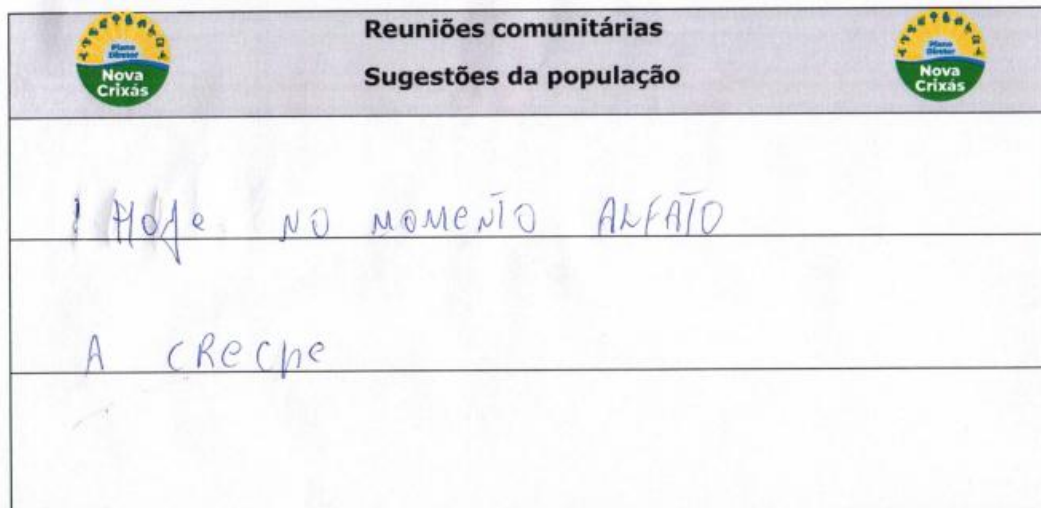 Plano Diretor
Nova Crixás
Reuniões comunitárias
Sugestões da população
Plano Diretor
Nova Crixás
Hoje NO MOMENTO ALFATO
A CReche